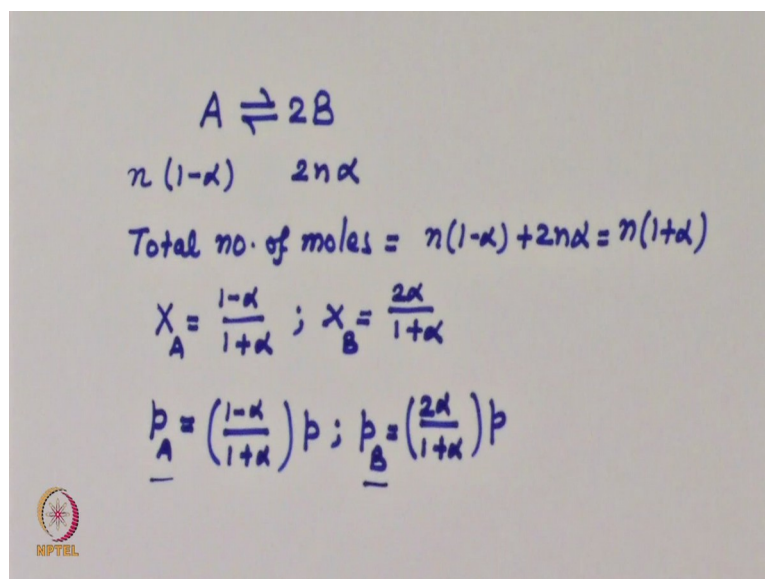 A ⇌ 2B
n(1-α) 2nα
Total no. of moles = n(1-α) + 2nα = n(1+α)
x_A = (1-α)/(1+α) ; x_B = 2α/(1+α)
p_A = ((1-α)/(1+α)) p ; p_B = (2α/(1+α)) p
NPTEL